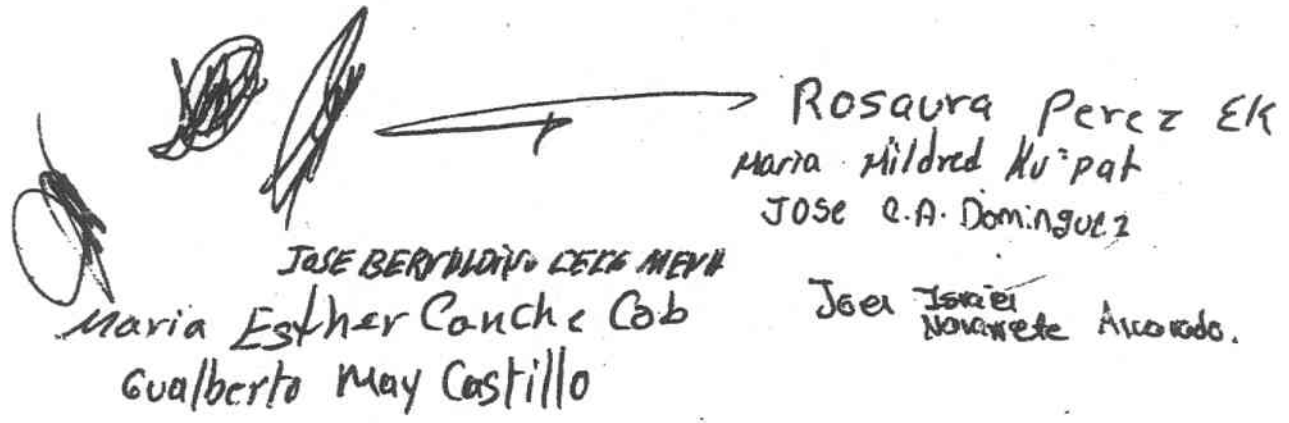 Rosaura Perez EK
Maria Mildred Ku pat
JOSE C.A. Dominguez
JOSE
Maria Esther Canche Cob
Gualberto May Castillo
Joel Israel
Navarrete